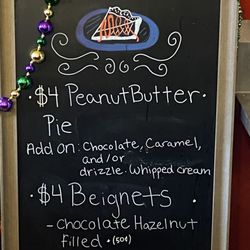 • $4 PeanutButter •
Pie
Add on: Chocolate, Caramel,
and/or
drizzle. Whipped cream
• $4 Beignets •
- Chocolate Hazelnut
filled • (50¢)